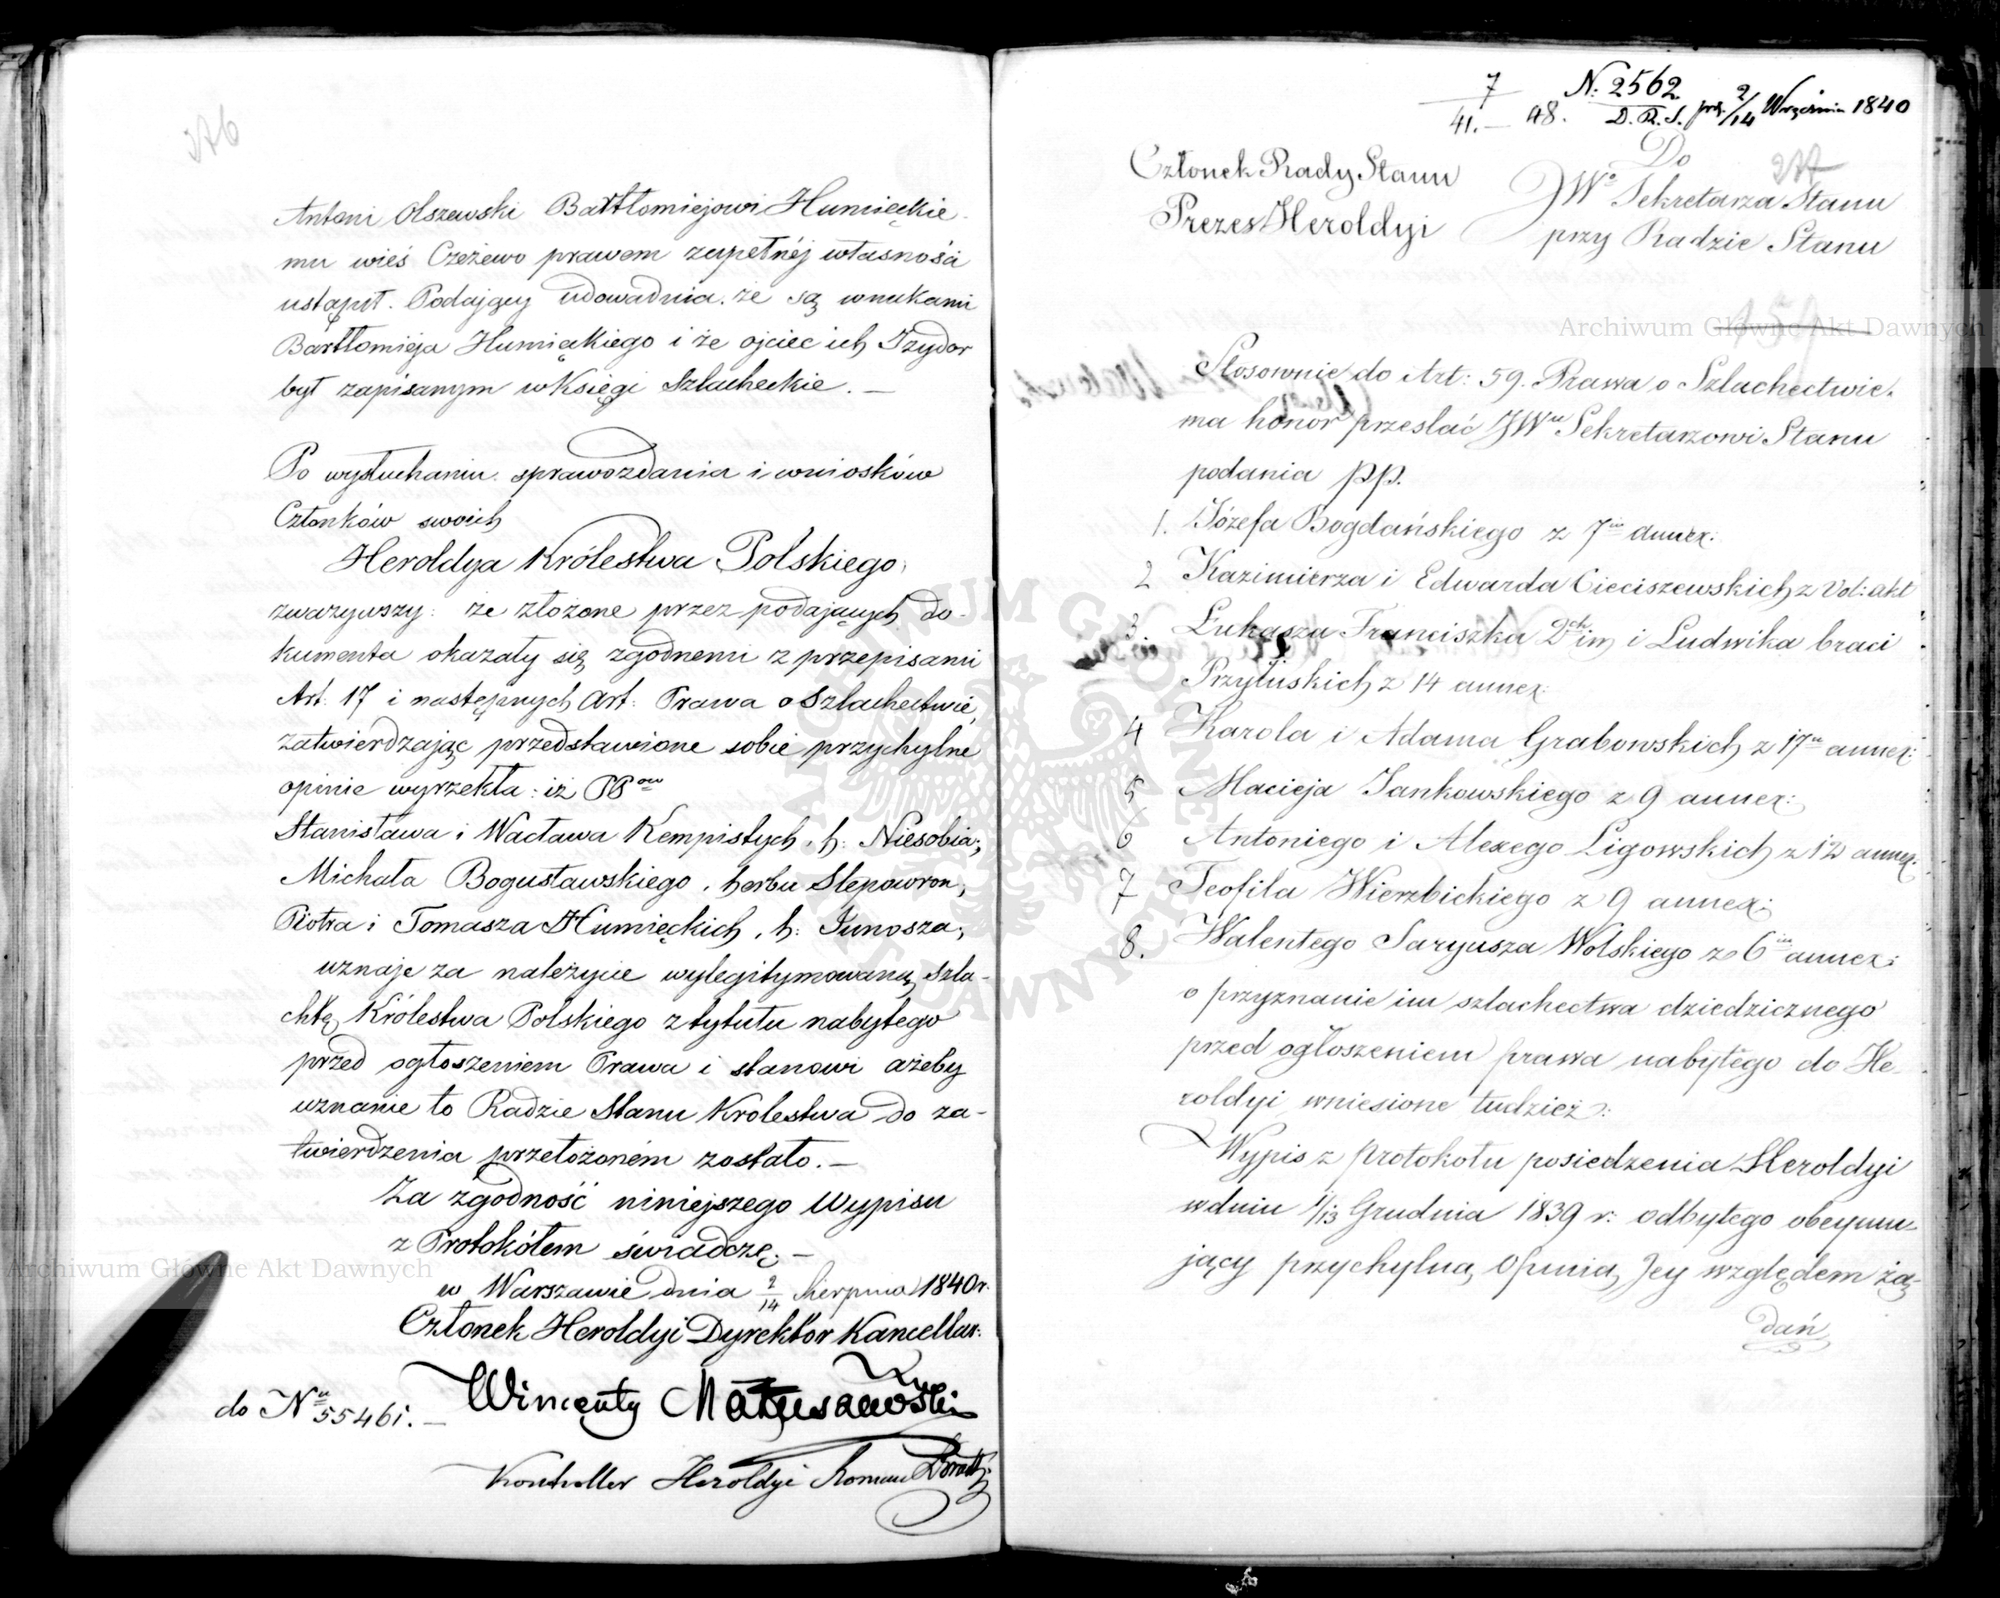 276
Antoni Olszewski Bartłomiejowi Humięckie-
mu wieś Czeżewo prawem zupełnéj własności
ustąpił. Podający udowadnia. że są wnukami
Bartłomieja Humięckiego i że ojciec ich Izydor
był zapisanym w Księgi Szlacheckie. —
Po wysłuchaniu sprawozdania i wniosków
Członków swoich
Heroldya Królestwa Polskiego,
zważywszy: że złożone przez podających do-
kumenta okazały się zgodnemi z przepisami
Art. 17 i następnych Art: Prawa o Szlachectwie,
zatwierdzając przedstawione sobie przychylne
opinie wyrzekła: iż PP ow
Stanisława i Wacława Kempistych, h: Niesobia;
Michała Bogusławskiego, herbu Slepowron,
Piotra i Tomasza Humięckich, h: Junosza;
uznaje za należycie wylegitymowaną szla-
chtę Królestwa Polskiego z tytułu nabytego
przed ogłoszeniem Prawa i stanowi ażeby
uznanie to Radzie Stanu Królestwa do za-
twierdzenia przełożoném zostało. —
Za zgodność niniejszego Wypisu
z Protokółem świadczę. —
w Warszawie dnia 2/14 Sierpnia 1840 r.
Członek Heroldyi Dyrektor Kancellar:
do Nu 55461. — Wincenty Matuszewski
Kontroller Heroldyi Roman
7 N: 2562
41. — 48. D. R. S. prz. 2/14 Września 1840
Członek Rady Stanu
Prezes Heroldyi
Do
JWo Sekretarza Stanu
przy Radzie Stanu
Stosownie do Art: 59. Prawa o Szlachectwie.
ma honor przesłać JWu Sekretarzowi Stanu
podania pp.
1. Józefa Bogdańskiego z 7iu annex:
2 Kazimierza i Edwarda Cieciszewskich z Vol: akt
3. Łukasza Franciszka 2ch im i Ludwika braci
Przyłuskich z 14 annex:
4 Karola i Adama Grabowskich z 17u annex:
5 Macieja Jankowskiego z 9 annex:
6 Antoniego i Alexego Ligowskich z 12 annex:
7 Teofila Wierzbickiego z 9 annex:
8. Walentego Saryusza Wolskiego z 6iu annex:
o przyznanie im szlachectwa dziedzicznego
przed ogłoszeniem prawa nabytego do He-
roldyi wniesione tudzież:
Wypis z protokołu posiedzenia Heroldyi
w dniu 1/13 Grudnia 1839 r: odbytego obeymu-
jący przychylną Opinią Jey względem żą-
dań
Archiwum Główne Akt Dawnych
Archiwum Główne Akt Dawnych
ARCHIWUM GŁÓWNE AKT DAWNYCH